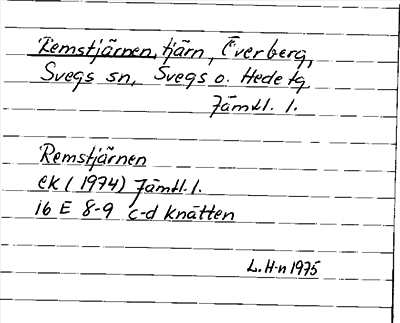 Remstjärnen, tjärn, Överberg,
Svegs sn, Svegs o. Hede tg
Jämtl. l.
Remstjärnen
ek (1974) Jämtl. l.
16 E 8-9 c-d Knätten
L. H-n 1975